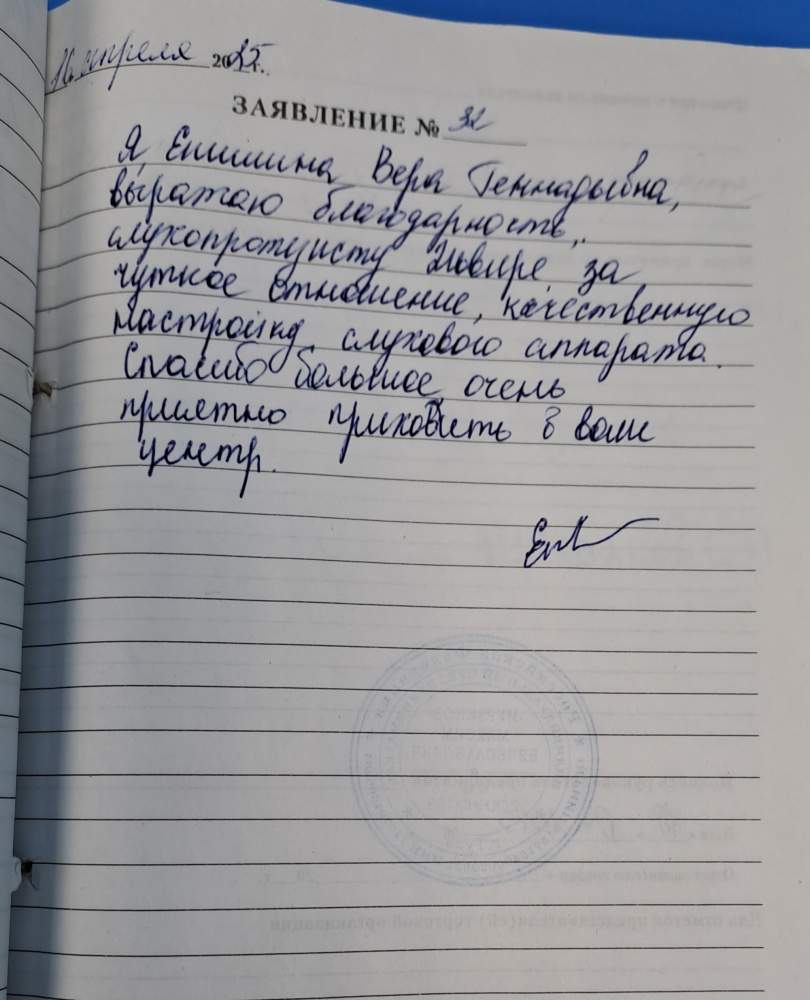 16 апреля 2025 г.
ЗАЯВЛЕНИЕ № 32
Я, Енишина Вера Геннадьевна,
выражаю благодарность
слухопротезисту Эльвире за
чуткое отношение, качественную
настройку слухового аппарата.
Спасибо большое, очень
приятно приходить в ваш
центр.